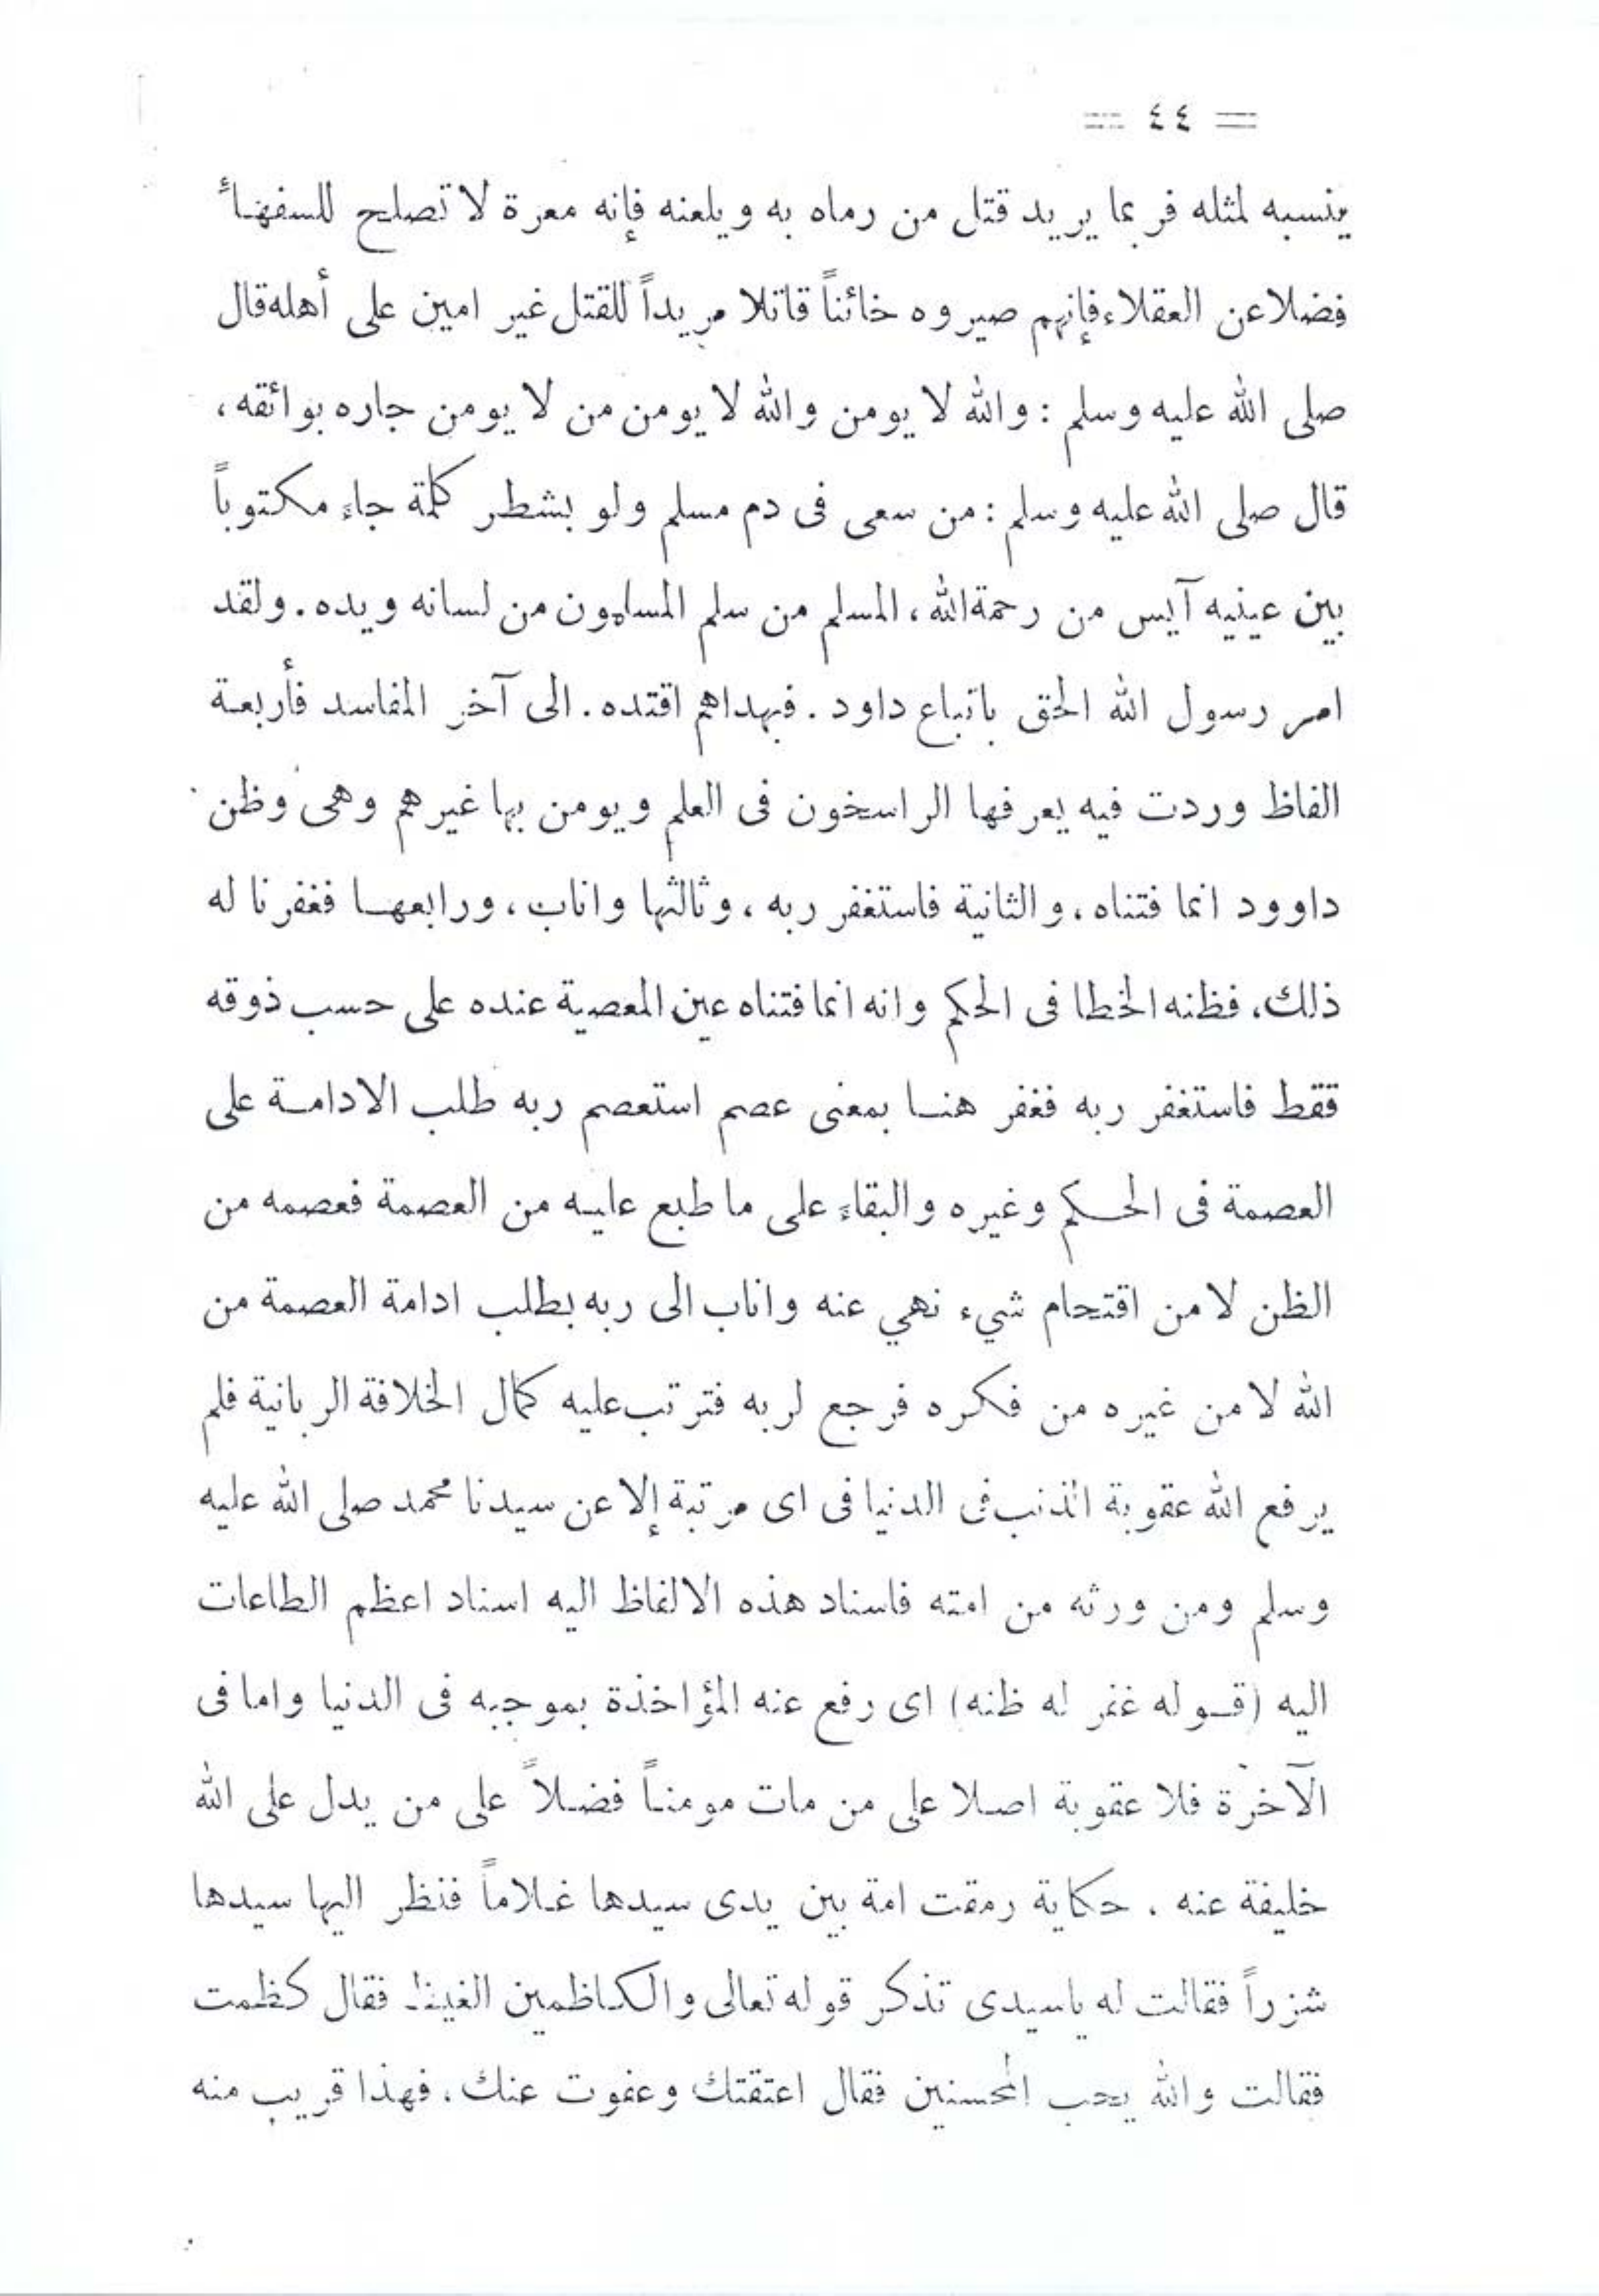 = ٤٤ =
ينسبه لمثله فربما يريد قتل من رماه به ويلعنه فإنه معرة لا تصلح للسفهاءً
فضلا عن العقلاء فإنهم صيروه خائناً قاتلا مريداً للقتل غير امين على أهله قال
صلى الله عليه وسلم : والله لا يومن والله لا يومن من لا يومن جاره بوائقه ،
قال صلى الله عليه وسلم : من سعى فى دم مسلم ولو بشطر كلمة جاء مكتوباً
بين عينيه آيس من رحمة الله ، المسلم من سلم المسلمون من لسانه ويده . ولقد
امر رسول الله الحق باتباع داود . فبهداهم اقتده . الى آخر المفاسد فأربعة
الفاظ وردت فيه يعرفها الراسخون فى العلم ويومن بها غيرهم وهى وظن
داوود انما فتناه ، والثانية فاستغفر ربه ، وثالثها واناب ، ورابعها فغفرنا له
ذلك ، فظنه الخطا فى الحكم وانه انما فتناه عين المعصية عنده على حسب ذوقه
فقط فاستغفر ربه فغفر هنا بمعنى عصم استعصم ربه طلب الادامة على
العصمة فى الحكم وغيره والبقاء على ما طبع عليه من العصمة فعصمه من
الظن لا من اقتحام شيء نهي عنه واناب الى ربه بطلب ادامة العصمة من
الله لا من غيره من فكره فرجع لربه فترتب عليه كمال الخلافة الربانية فلم
يرفع الله عقوبة الذنب فى الدنيا فى اى مرتبة إلا عن سيدنا محمد صلى الله عليه
وسلم ومن ورثه من امته فاسناد هذه الالفاظ اليه اسناد اعظم الطاعات
اليه (قوله غفر له ظنه) اى رفع عنه المؤاخذة بموجبه فى الدنيا واما فى
الآخرة فلا عقوبة اصلا على من مات مومناً فضلاً على من يدل على الله
خليفة عنه . حكاية رمقت امة بين يدى سيدها غلاماً فنظر اليها سيدها
شزراً فقالت له ياسيدى تذكر قوله تعالى والكاظمين الغيظ فقال كظمت
فقالت والله يحب المحسنين فقال اعتقتك وعفوت عنك ، فهذا قريب منه